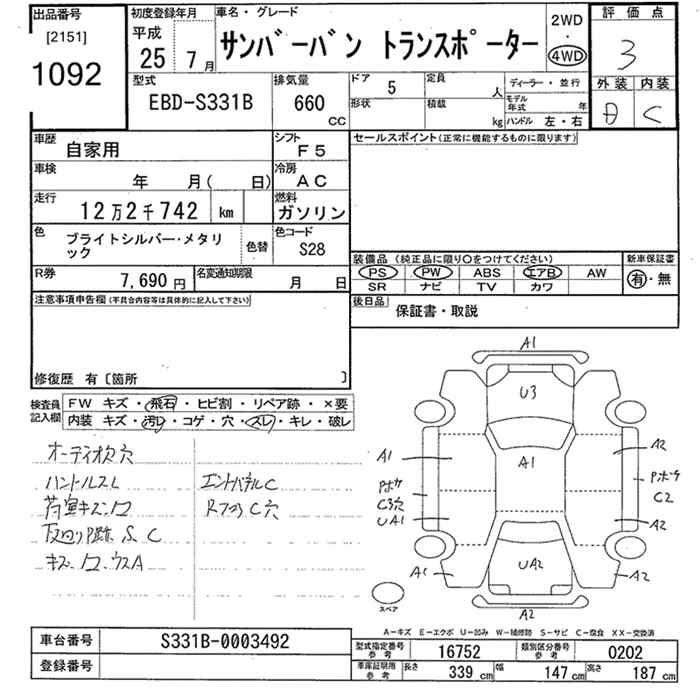 出品番号
[2151]
1092
初度登録年月
平成
25 7月
車名・グレード
サンバーバン トランスポーター
2WD
・
4WD
評価点
3
外装 内装
D C
型式
EBD-S331B
排気量
660 CC
ドア 5
定員 人
形状
積載 kg
ディーラー・並行
モデル年式 年
ハンドル 左・右
車歴
自家用
シフト
F5
車検
年 月( 日)
冷房
AC
走行
12万2千742 km
燃料
ガソリン
色
ブライトシルバー・メタリ
ック
色替
色コード
S28
R券
7,690 円
名変通知期限
月 日
セールスポイント(正常に機能するものに限ります)
装備品 (純正品に限り○をつけてください)
PS PW ABS エアB AW
SR ナビ TV カワ
新車保証書
有・無
後日品
保証書・取説
注意事項申告欄 (不具合内容等は具体的に記入して下さい)
修復歴 有 [箇所 ]
検査員
記入欄
FW キズ・飛石・ヒビ割・リペア跡・×要
内装 キズ・汚レ・コゲ・穴・スレ・キレ・破レ
オーディオ欠穴
ハンドルスレ
荷室キズ
下廻り S C
キズ
C
C穴
A1
U3
A1
A1
A2
Pボケ
C穴
UA1
Pボケ
C2
A2
UA2
A1
A2
A2
スペア
A-キズ E-エクボ U-凹み W-補修跡 S-サビ C-腐食 XX-交換済
車台番号
S331B-0003492
登録番号
型式指定番号
参考
16752
類別区分番号
参考
0202
車庫証明用
参考
長さ 339 cm
幅 147 cm
高さ 187 cm